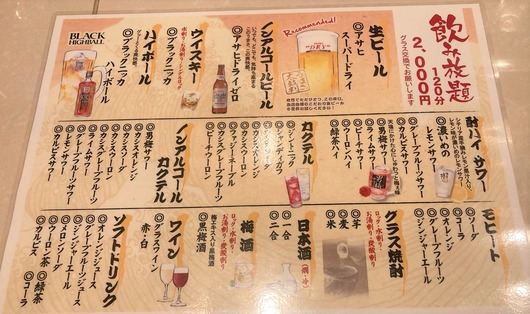 飲み放題
120分
2,000円
グラス交換でお願いします
生ビール
◎アサヒ
スーパードライ
Recommended!
ノンアルコールビール
◎アサヒドライゼロ
ウイスキー
◎ブラックニッカ
ハイボール
◎ブラックニッカ
ハイボール
BLACK
HIGHBALL
酎ハイ・サワー
◎濃いめの
レモンサワー
◎グレープフルーツサワー
◎カルピスサワー
◎男梅サワー
◎ライムサワー
◎ピーチサワー
◎ウーロンハイ
◎緑茶ハイ
カクテル
◎ジントニック
◎シャンディガフ
◎カシスオレンジ
◎カシスウーロン
◎ファジーネーブル
◎ピーチウーロン
ノンアルコール
カクテル
◎カシスオレンジ
◎カシスソーダ
◎カシスグレープフルーツ
◎ライムサワー
◎グレープフルーツサワー
◎レモンサワー
◎カルピスサワー
◎男梅サワー
モヒート
◎ソーダ
◎コーラ
◎オレンジ
◎グレープフルーツ
◎ジンジャーエール
グラス焼酎
ロック・水割り・
お湯割り・炭酸割り
◎芋
◎麦
◎米
日本酒
(燗・冷)
◎一合
◎二合
梅酒
ロック・水割り・
お湯割り・炭酸割り
◎黒梅酒
ワイン
◎グラスワイン
赤・白
ソフトドリンク
◎オレンジジュース
◎グレープフルーツジュース
◎ジンジャーエール
◎メロンソーダ
◎ウーロン茶
◎カルピス
◎緑茶
◎コーラ